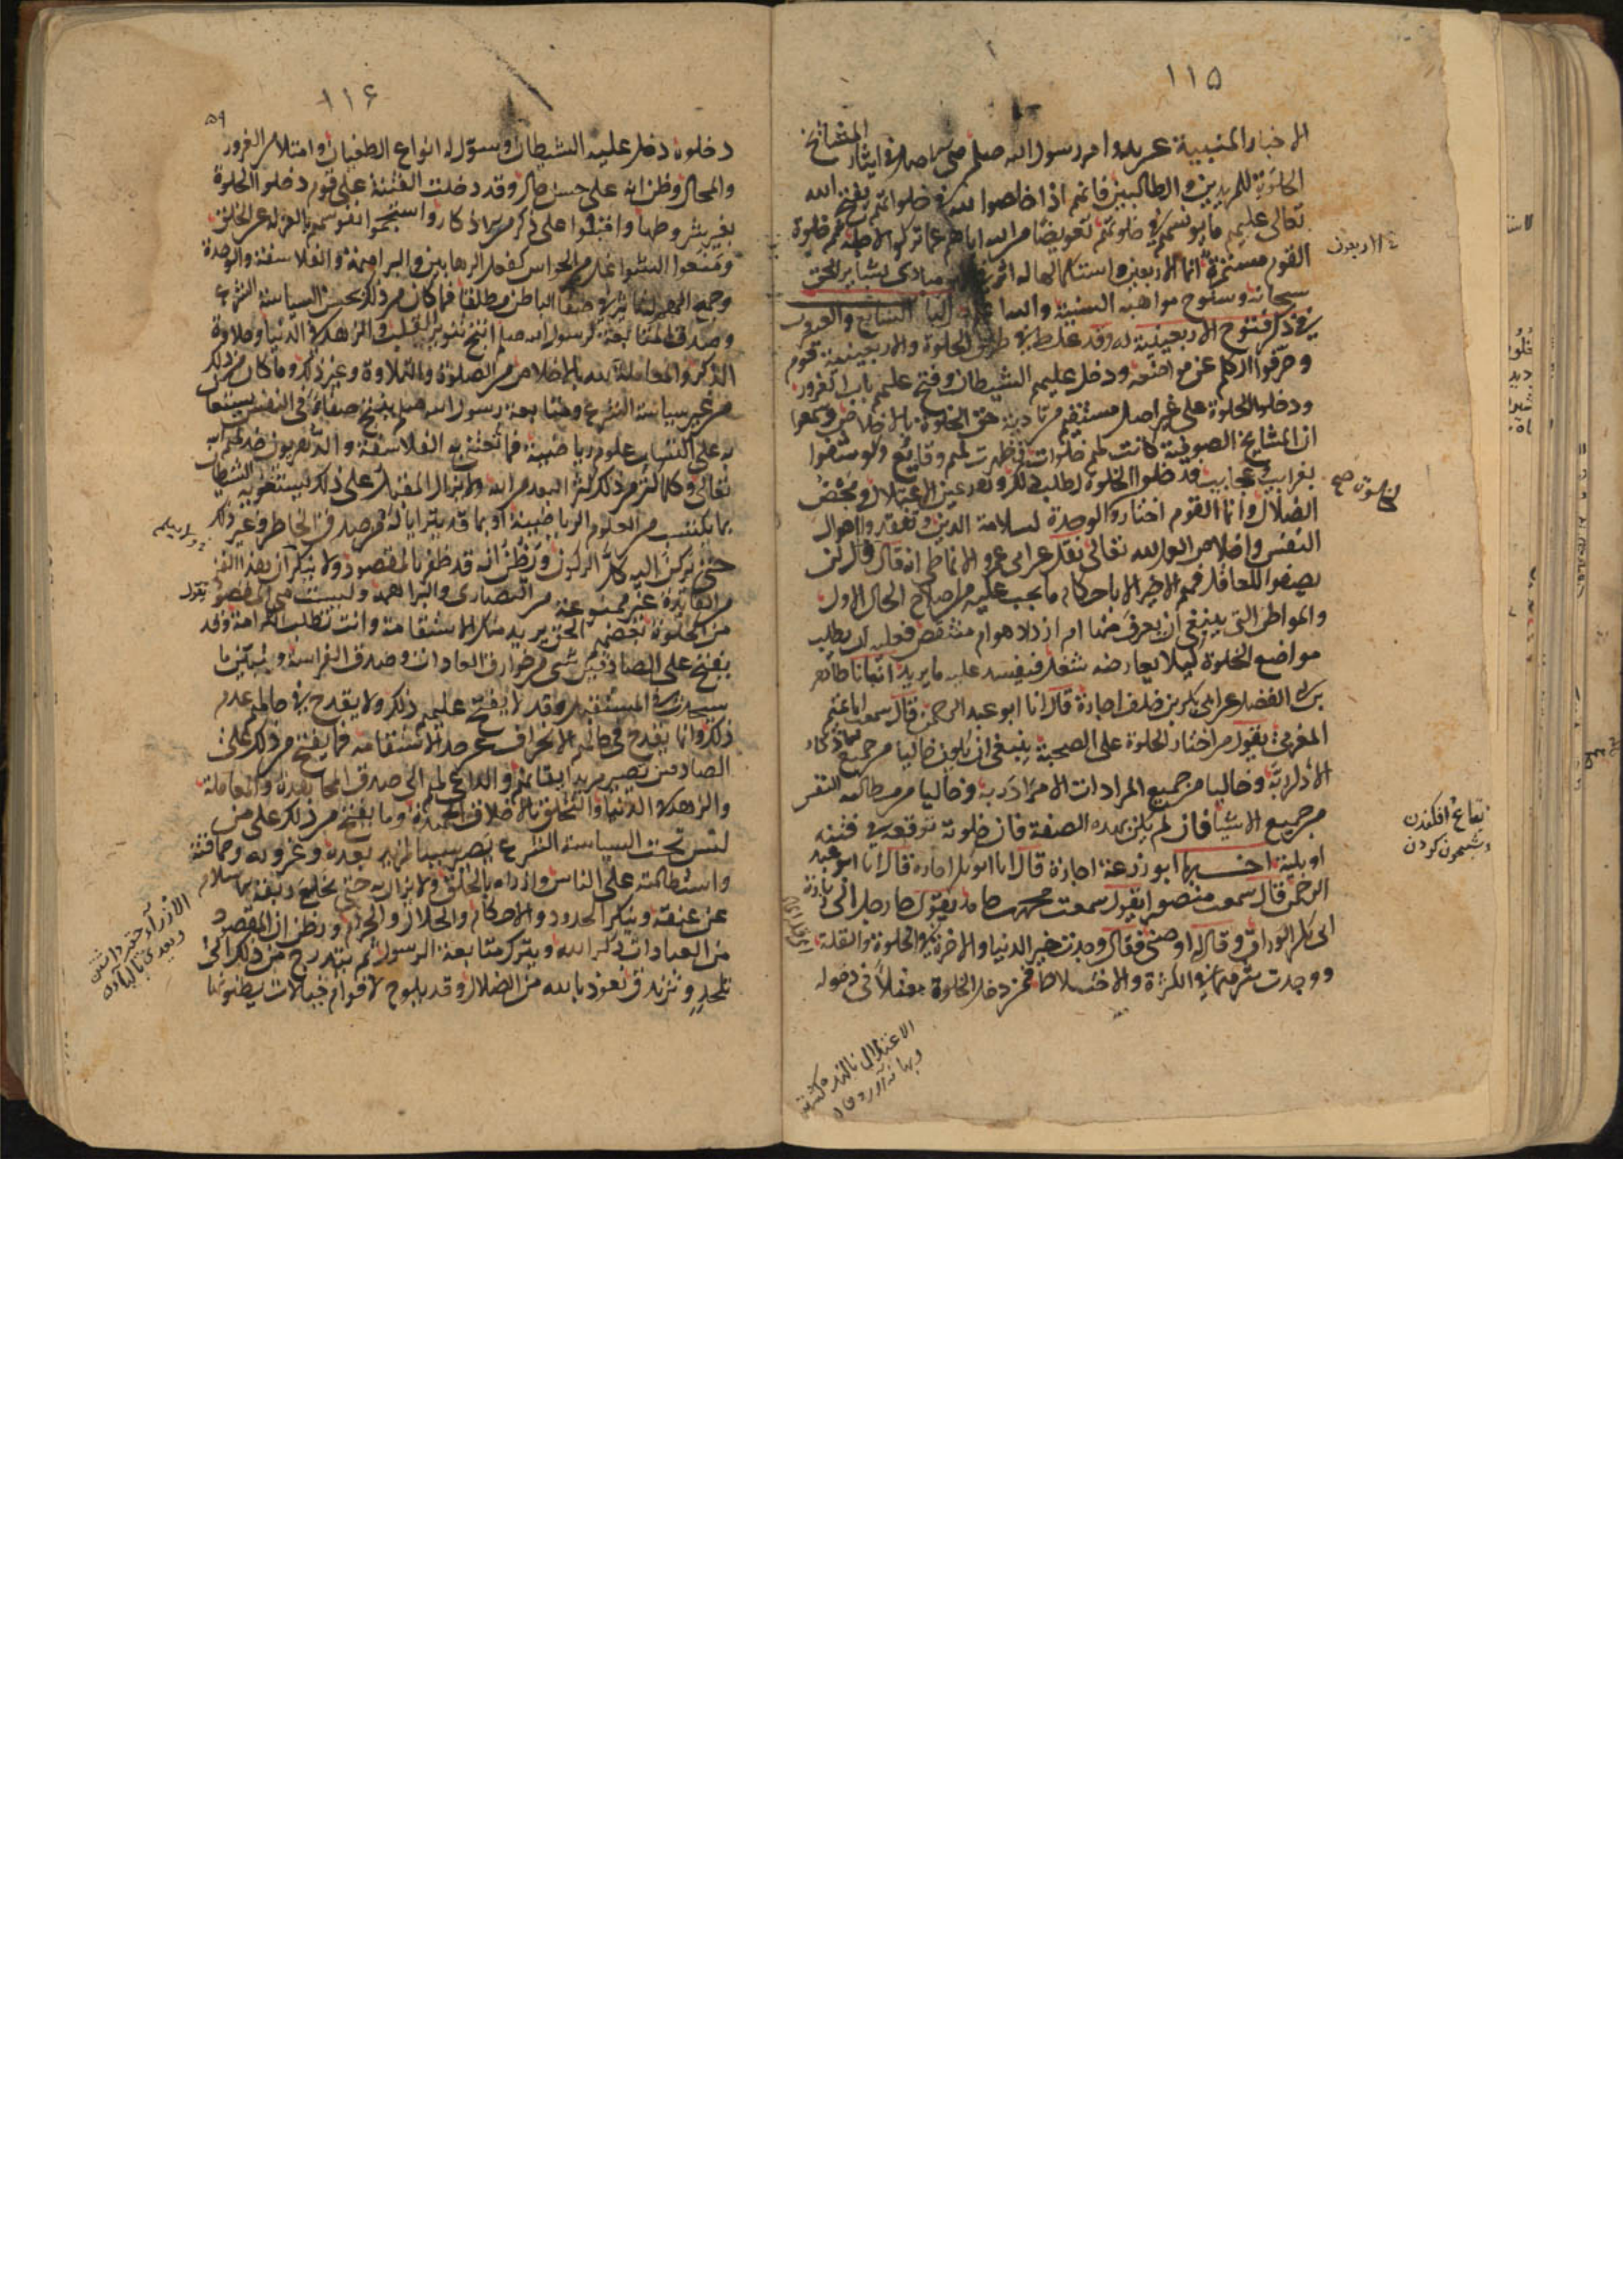 ١١٥
الاخبار المنبية عن بدو امر رسول الله صلعم هى الاصل فى ايثار المشائخ
الخلوة للمريدين والطالبين فانهم اذا اخلصوا لله فى خلواتهم يفتح الله
تعالى عليهم ما يونسهم فى خلوتهم تعويضا من الله اياهم عما تركوا لاجله ثم خلوة
القوم مستمرة وانما الاربعين واستكماله له اثر ظاهر فى ظهور مبادى بشاير الحق
سبحانه وسنوح مواهبه السنية الباب السابع والعشرون
فى ذكر فتوح الاربعينية وقد غلط فى طريق الخلوة والاربعينية قوم
وحرفوا الكلم عن مواضعه ودخل عليهم الشيطان وفتح عليهم باب الغرور
ودخلوا الخلوة على غير اصل مستقيم من تادية حق الخلوة بالاخلاص وسمعوا
ان المشايخ الصوفية كانت لهم خلوات وظهرت لهم وقايع وكوشفوا
بغرايب وعجايب فدخلوا الخلوة لطلب ذلك وهذا عين الاعتلال ومحض
الضلال وانما القوم اختاروا الوحدة لسلامة الدين وتفقد احوال
النفس واخلاص العمل لله تعالى نقل عن ابى عمرو الانماطى انه قال لن
يصفوا للعاقل فهم الاخير الا باحكام ما يجب عليه من اصلاح الحال الاول
والمواطن التى ينبغى ان يعرف منها امزداد هو ام منتقص فعليه ان يطلب
مواضع الخلوة ليلا يعارضه شغل فيفسد عليه ما يريد انبانا طاهر
بن ابى الفضل عن ابى بكر بن خلف اجازة قال انا ابو عبد الرحمن قال سمعت ابا تميم
المغربى يقول من اختار الخلوة على الصحبة ينبغى ان يكون خاليا من جميع الاذكار
الا ذكر ربه وخاليا من جميع المرادات الا مراد ربه وخاليا من مطالبة النفس
من جميع الاشيا فان لم يكن بهذه الصفة فان خلوته توقعه فى فتنة
او بلية اخبرنا ابو زرعة اجازة قال انا ابو بكر اجازة قال انا ابو عبد
الرحمن قال سمعت منصورا يقول سمعت محمد بن حامد يقول جا رجل الى زيارة
ابى بكر الوراق وقال له اوصنى فقال وجدت خير الدنيا والاخرة فى الخلوة والقلة
ووجدت شرهما فى الكثرة والاختلاط فمن دخل الخلوة معتلا فى دخوله
الاربعون
الصوفية صح
وشبيخون كردن
الاعتلال
١١۶
٥٩
دخلوه دخل عليه الشيطان وسول له انواع الطغيان وامتلا من الغرور
والمحال وظن انه على حسن حال وقد دخلت الفتنة على قوم دخلوا الخلوة
بغير شروطها واقبلوا على ذكر من الاذكار واستجموا نفوسهم بالعزلة عن الخلق
ومنعوا الشواغل من الحواس كفعل الرهابين والبراهمة والفلاسفة والوحدة
وجمع الهم لها تاثير فى صفا الباطن مطلقا فما كان من ذلك بحسن السياسة الشرع
وصدق المتابعة لرسول الله صلعم انتج تنوير القلب والزهد فى الدنيا وحلاوة
الذكر والمعاملة لله بالاخلاص من الصلوة والتلاوة وغير ذلك وما كان من ذلك
من غير سياسة الشرع ومتابعة رسول الله صلعم ينتج صفا فى النفس يستعان
به على اكتساب علوم رياضية فما تعتنى به الفلاسفة والدهريون خذلهم الله
تعالى وكلما اكثر من ذلك كثر البعد من الله ولا يزال المقبل على ذلك يستغويه الشيطان
بما يكتسب من العلوم الرياضية او بما قد يترايا له من صدق الخاطر وغير ذلك
حتى يركن اليه كل الركون ويظن انه قد ظفر بالمقصود ولا ينكر ان هذا الفن
من الفايدة غير ممنوعة من النصارى والبراهمة وليست هى المقصود
من الخلوة بعضهم الحق يريد منك الاستقامة وانت تطلب الكرامة وقد
يفتح على الصادقين شى من خوارق العادات وصدق الفراسة وتبين ما
سيحدث فى المستقبل وقد لا يفتح عليهم ذلك ولا يقدح فى حالهم عدم
ذلك وانما يقدح فى حالهم الانحراف عن حد الاستقامة فما يفتح من ذلك على
الصادقين يصير مزيد ايقانهم والداعى لهم الى صدق المجاهدة والمعاملة
والزهد فى الدنيا والتخلق بالاخلاق الحميدة وما يفتح من ذلك على من
ليس تحت السياسة الشرع يصير سببا لمزيد بعده وغروره وحماقته
واستطالته على الناس وازدراه بالخلق ولا يزال به حتى يخلع ربقة الاسلام
عن عنقه وينكر الحدود والاحكام والحلال والحرام ويظن ان المقصود
من العبادات ذكر الله ويترك متابعة الرسول ثم يتدرج من ذلك الى
تلحد وتزندق نعوذ بالله من الضلال وقد يلوح لاقوام خيالات يظنونها
يقول